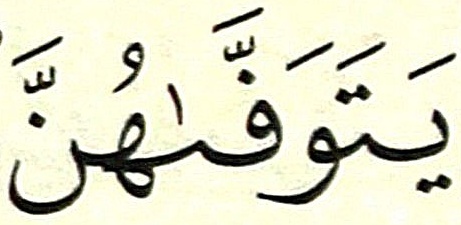 يَتَوَفَّىٰهُنَّ